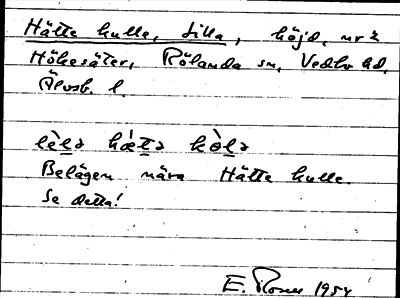 Hätte kulle, Lilla, höjd, nr 2
Hökesäter, Rölanda sn, Vedbo hd,
Älvsb. l.
Belägen nära Hätte kulle.
Se detta!
E. 1954